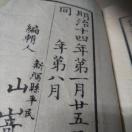 明治十四年第一月廿五
同　　　年第八月
編輯人
新潟縣平民
山